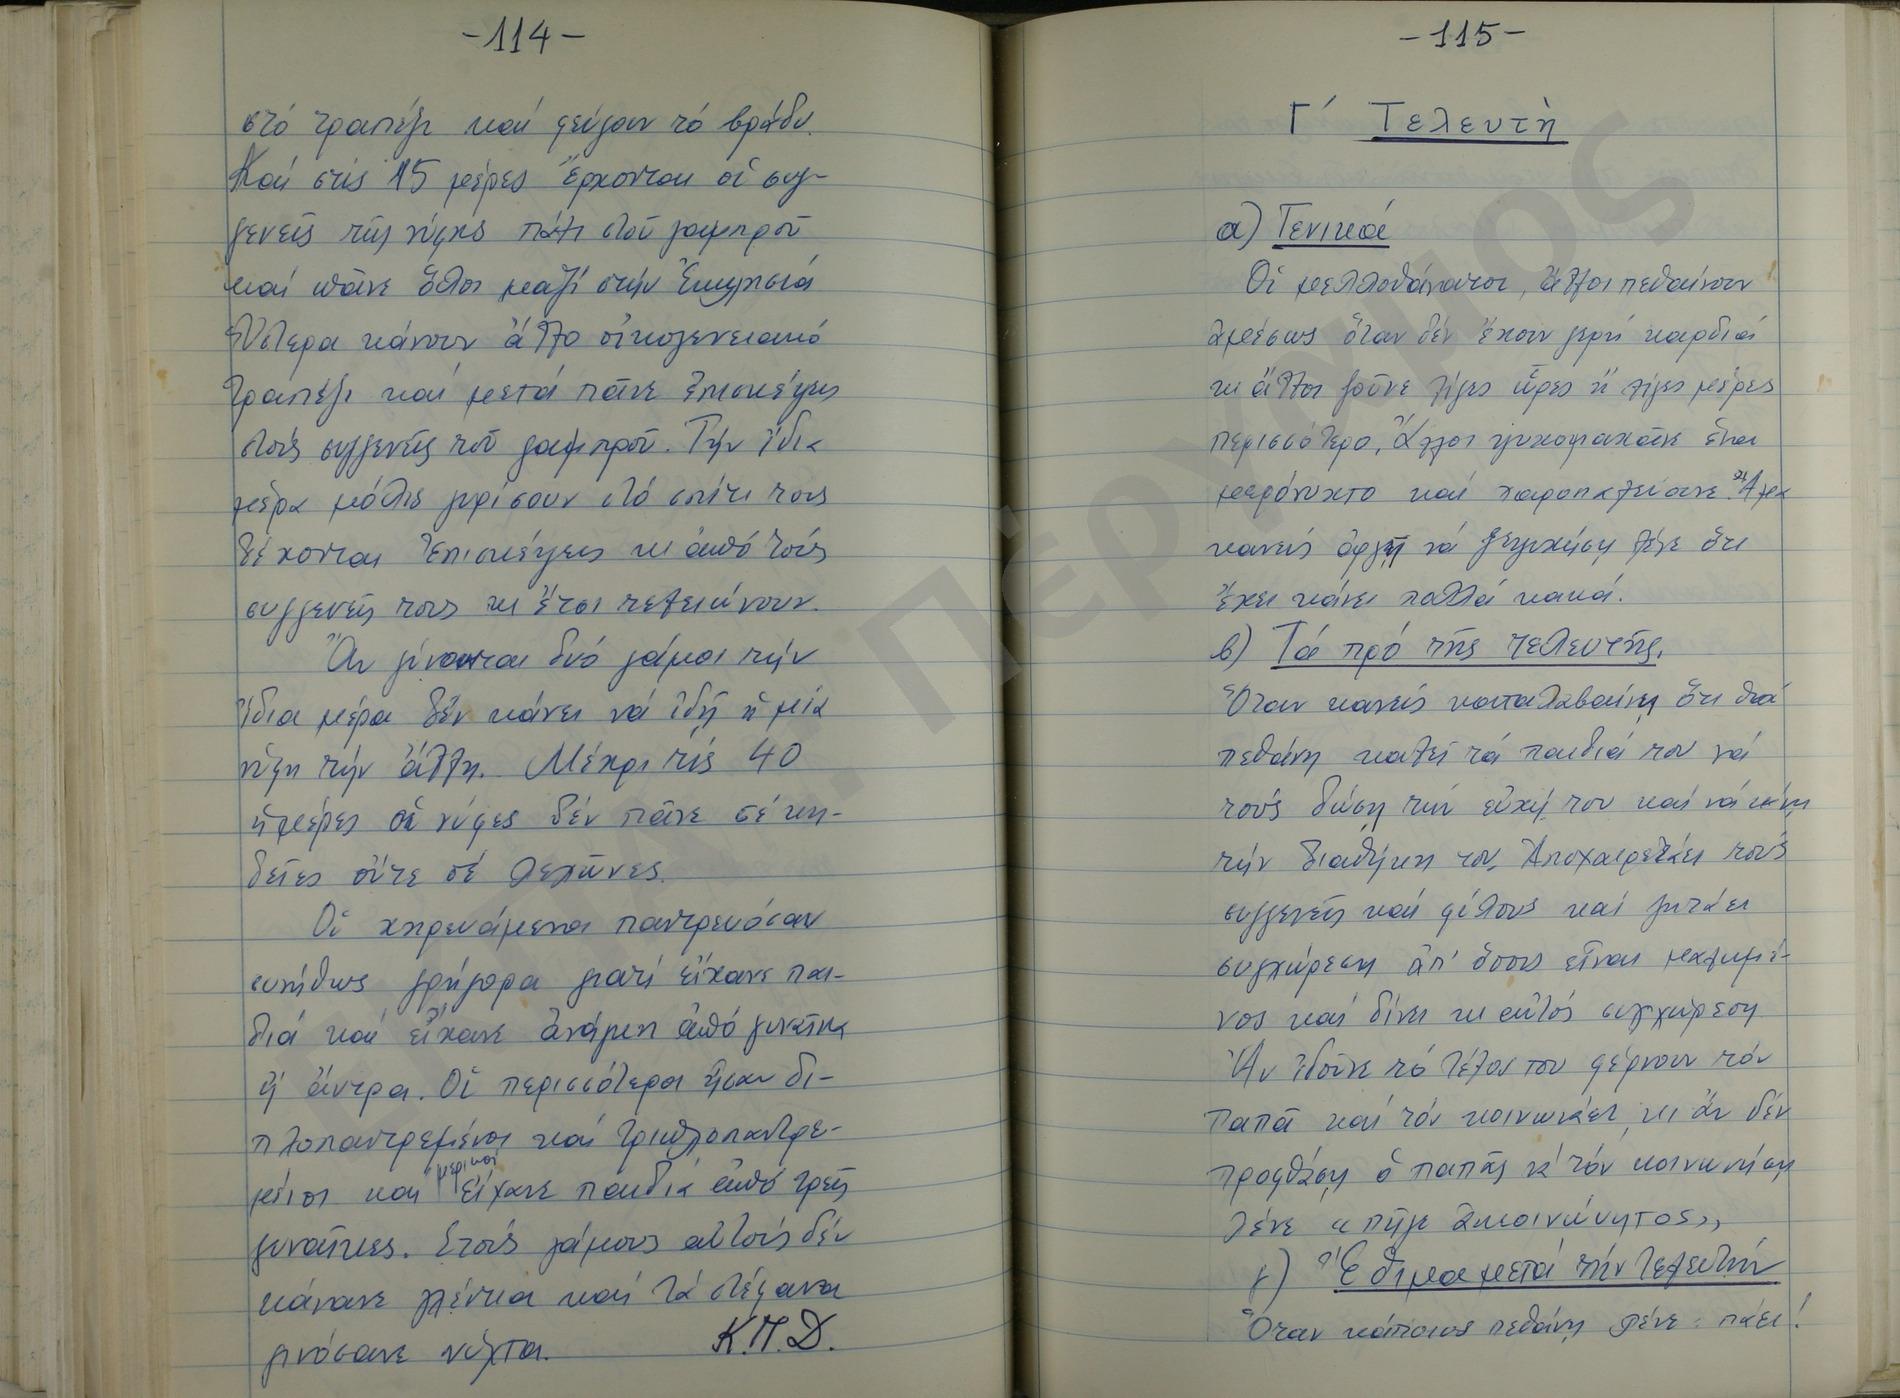 -114-
στό τραπέζι καί φεύγουν τό βράδυ.
Καί στίς 15 μέρες ἔρχονται οἱ συγ-
γενεῖς τῆς νύφης πάλι στοῦ γαμπροῦ
καί πᾶνε ὅλοι μαζί στήν Ἐκκλησιά
Ὕστερα κάνουν ἄλλο οἰκογενειακό
τραπέζι καί μετά πᾶνε ἐπισκέψεις
στούς συγγενεῖς τοῦ γαμπροῦ. Τήν ἴδια
μέρα μόλις γυρίσουν στό σπίτι τους
δέχονται ἐπισκέψεις κι ἀπό τούς
συγγενεῖς τους κι ἔτσι τελειώνουν.
Ἄν γίνονται δυό γάμοι τήν
ἴδια μέρα δέν κάνει νά ἰδῆ ἡ μία
νύφη τήν ἄλλη. Μέχρι τίς 40
ἡμέρες οἱ νύφες δέν πᾶνε σέ κη-
δεῖες οὔτε σέ λεχῶνες.
Οἱ χηρευάμενοι παντρευόσαν
συνήθως γρήγορα γιατί εἴχανε παι-
διά καί εἴχανε ἀνάγκη ἀπό γυναῖκα
ἤ ἄντρα. Οἱ περισσότεροι ἦσαν δι-
πλοπαντρεμένοι καί τριπλοπαντρε-
μένοι καί μερικοί εἴχανε παιδιά ἀπό τρεῖς
γυναῖκες. Στούς γάμους αὐτούς δέν
κάνανε γλέντια καί τά στέφανα
γινόσανε νύχτα. Κ.Π.Δ.
-115-
Γ΄ Τελευτὴ
α) Γενικά
Οἱ μελλοθάνατοι, ἄλλοι πεθαίνουν
ἀμέσως ὅταν δέν ἔχουν γερή καρδιά
κι ἄλλοι ζοῦνε λίγες ὧρες ἤ λίγες μέρες
περισσότερο. Ἄλλοι ψυχομαχᾶνε ἕνα
μερόνυχτο καί χαροπαλεύουνε. Ἅμα
κανείς ἀργῆ νά ξεψυχήση λένε ὅτι
ἔχει κάνει πολλά κακά.
β) Τά πρό τῆς τελευτῆς.
Ὅταν κανείς καταλαβαίνη ὅτι θά
πεθάνη καλεῖ τά παιδιά του νά
τούς δώση τήν εὐχή του καί νά κάνη
τήν διαθήκη του. Ἀποχαιρετάει τούς
συγγενεῖς καί φίλους καί ζητάει
συγχώρεση ἀπ' ὅσους εἶναι μαλωμέ-
νος καί δίνει κι αὐτός συγχώρεση
Ἄν ἰδοῦνε τό τέλος του φέρνουν τόν
Παπᾶ καί τόν κοινωνάει, κι ἄν δέν
προφθάση ὁ παπᾶς νά τόν κοινωνήση
λένε «πῆγε ἀκοινώνητος»
γ) Ἔθιμα μετά τήν τελευτήν
Ὅταν κάποιος πεθάνη λένε: πάει!